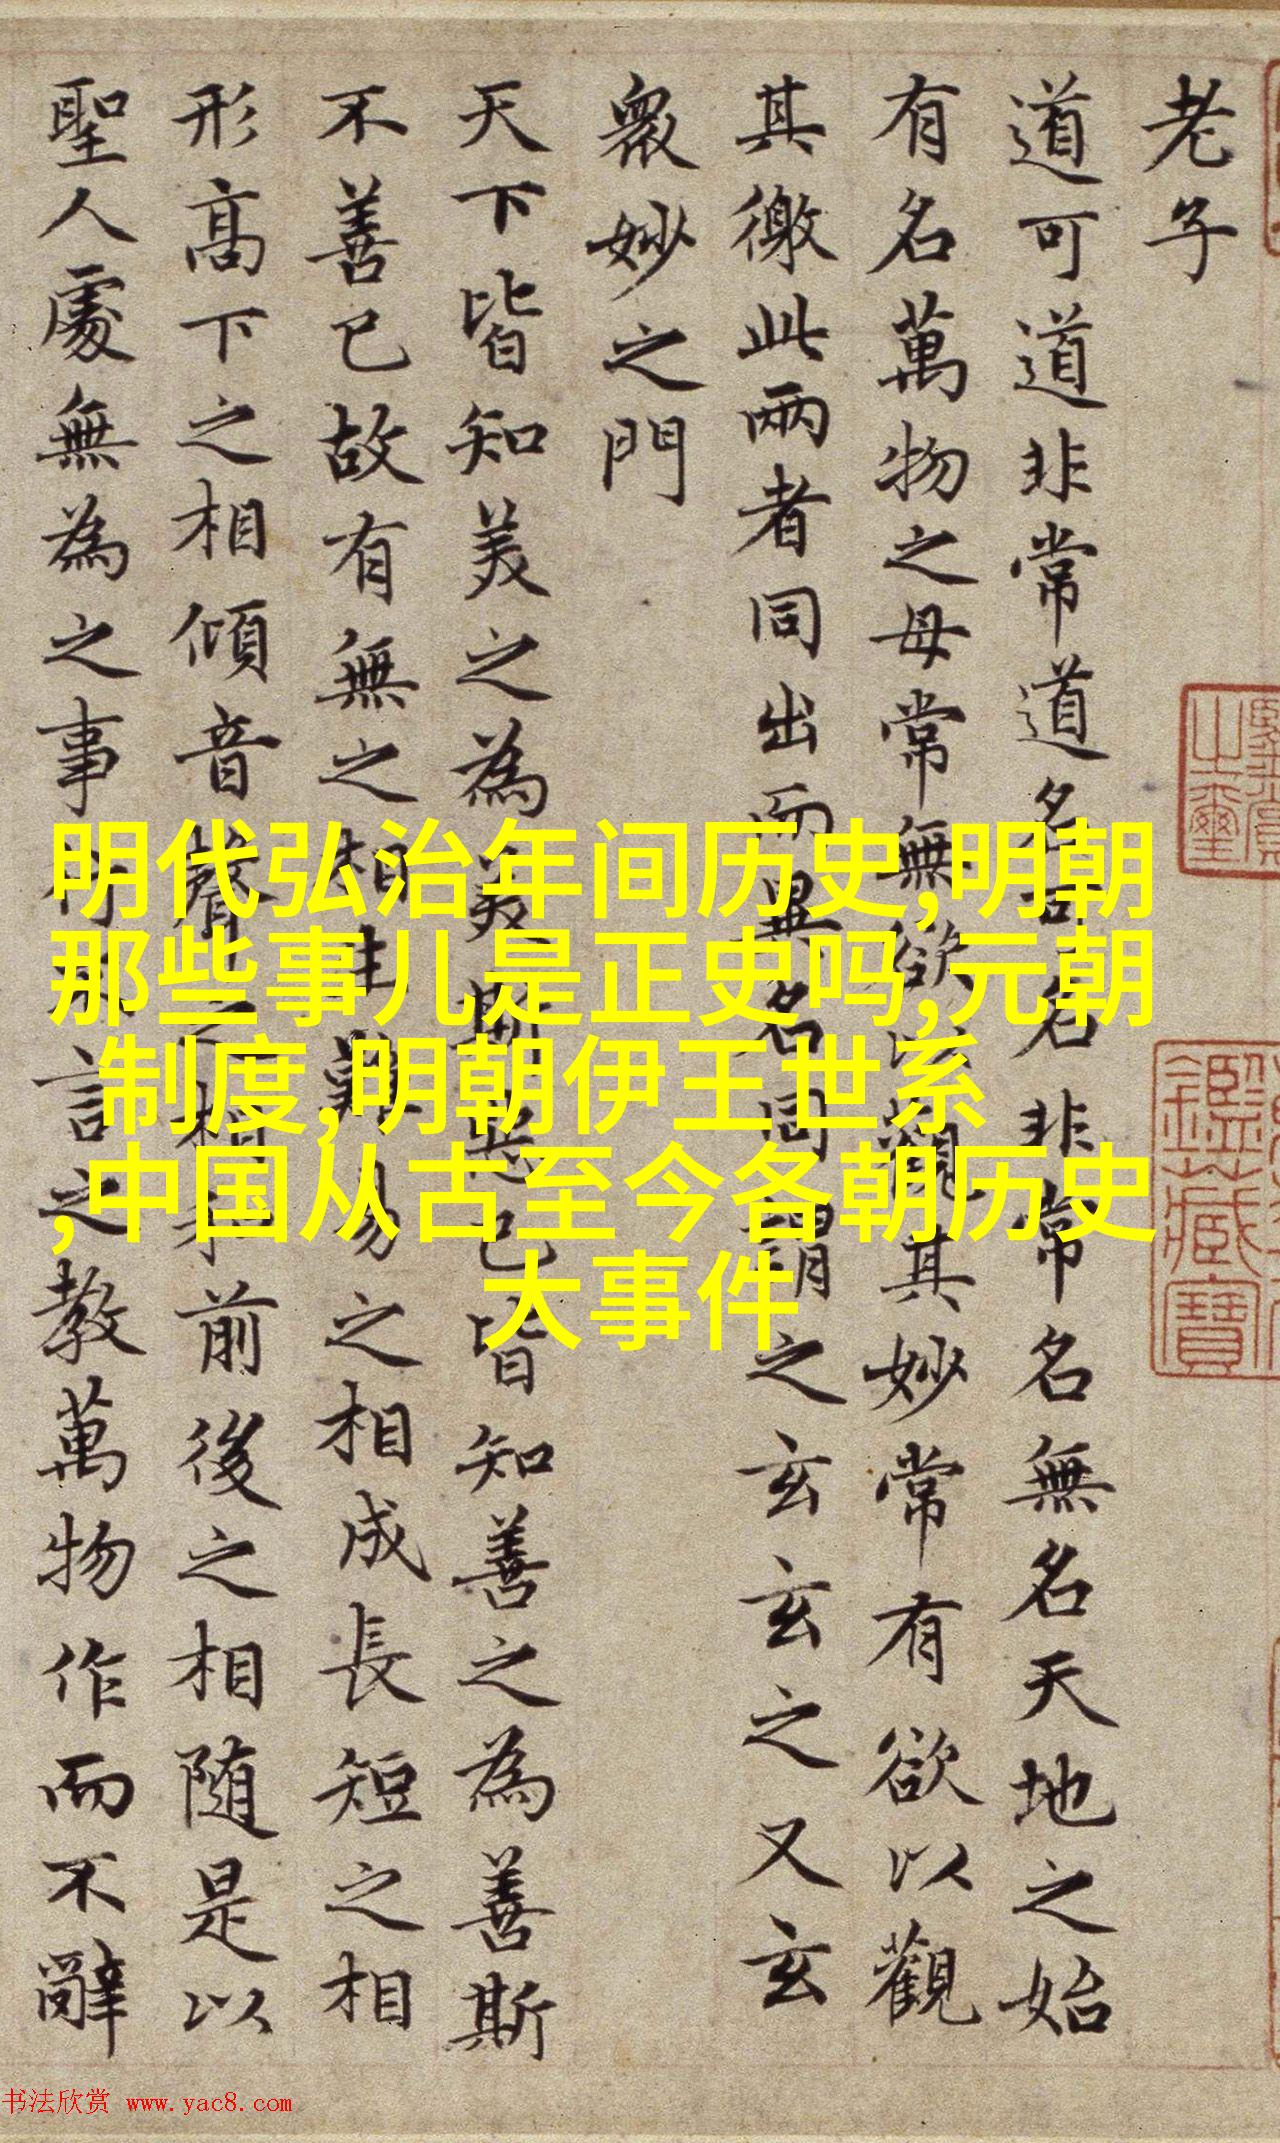 老子
道可道非常道名可名非常名無名天地之始
有名萬物之母常無欲以觀其妙常有欲以觀
其徼此兩者同出而異名同謂之玄玄之又玄
衆妙之門
天下皆知美之為美斯惡已皆知善之為善斯
不善已故有無之相生難易之相成長短之相
形高下之相傾音聲之相和前後之相随是以
聖人處無為之事行不言之教萬物作而不辭
明代弘治年间历史,明朝
那些事儿是正史吗,元朝
制度,明朝伊王世系
,中国从古至今各朝历史
大事件
鑑藏寶
书法欣赏 www.yac8.com